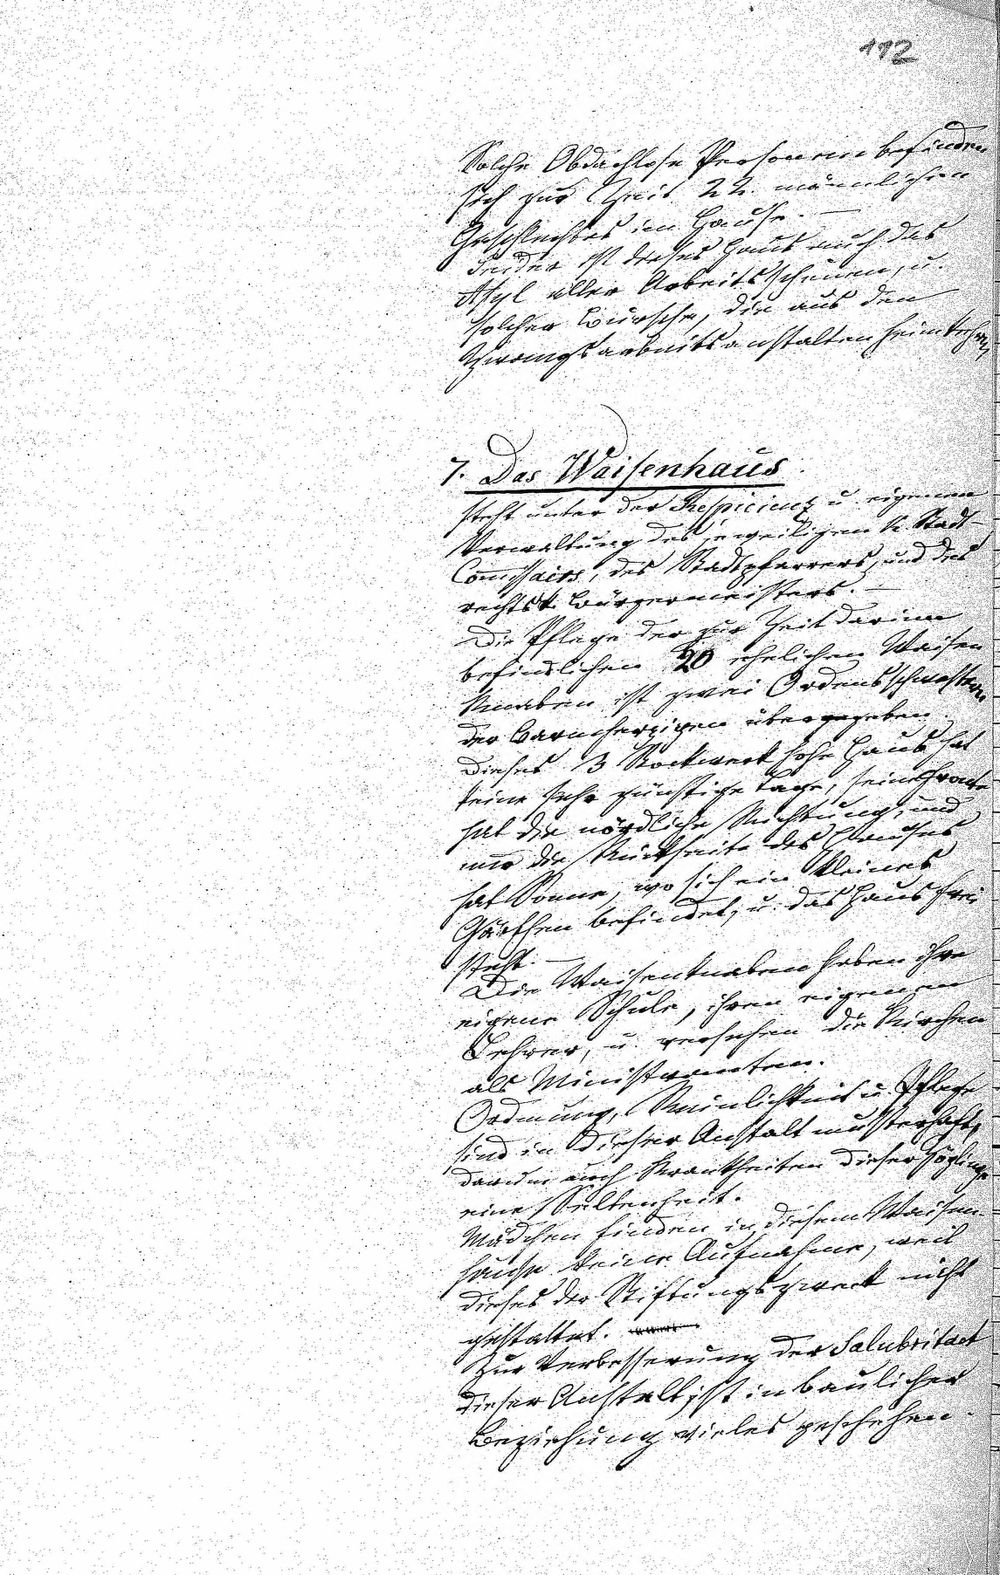 112
Solche Obdachlose Personen befinden
sich zur Zeit 22 männlichen
Geschlechtes im Hause. —
Leider ist dieses Haus auch das
Asyl aller Arbeitsscheuen, u.
solcher Bursche, die aus den
Zwangsarbeitsanstalten heimkehren
7. Das Waisenhaus
steht unter der Respicienz u. eigenen
Verwaltung des jeweiligen k. Stadt-
Commissairs, des Stadtpfarrers, und des
rechtsk. Bürgermeisters. —
Die Pflege der zur Zeit darinn
befindlichen 20 ehelichen Waisen
Knaben ist zwei Ordensschwestern
der Barmherzigen übergegeben.
Dieses 3 Stockwerk hohe Haus hat
keine sehr günstige Lage, seine Fronte
hat die nördliche Richtung, und
nur die Rückseite des Hauses
hat Sonne, wo sich ein kleines
Gärtchen befindet, u. das Haus frei
steht. —
Die Waisenknaben haben ihre
eigene Schule, ihren eigenen
Lehrer, u. versehen die Kirchen
als Ministranten.
Ordnung, Reinlichkeit u. Pflege
sind in dieser Anstalt musterhaft,
darum auch Krankheiten dieser Zöglinge
eine Seltenheit.
Mädchen finden in diesem Waisen-
hause keine Aufnahme, weil
dieses der Stiftungszweck nicht
gestattet.
Zur Verbesserung der Salubritaet
dieser Anstalt ist in baulicher
Beziehung vieles geschehen.